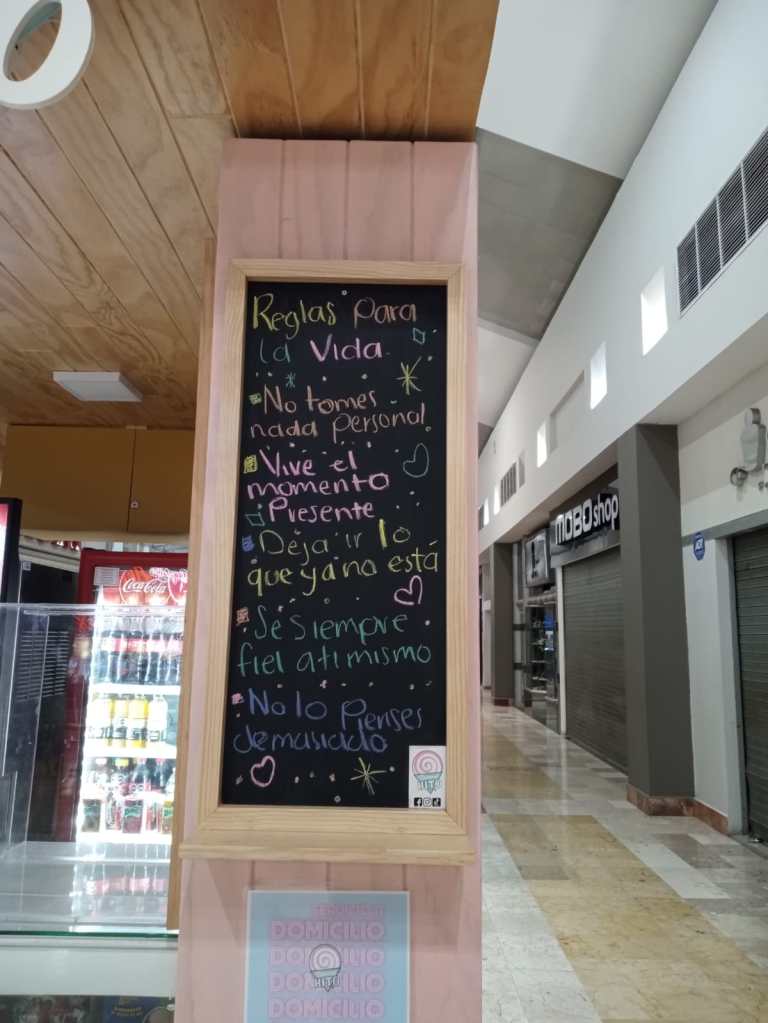 Reglas Para
la Vida
No tomes
nada personal.
Vive el
momento
Presente
Deja ir lo
que ya no está
Se siempre
fiel a ti mismo
No lo Pienses
demasiado
HITO
Coca-Cola
MOBO shop
ADT
DOMICILIO
DOMICILIO
DOMICILIO
DOMICILIO